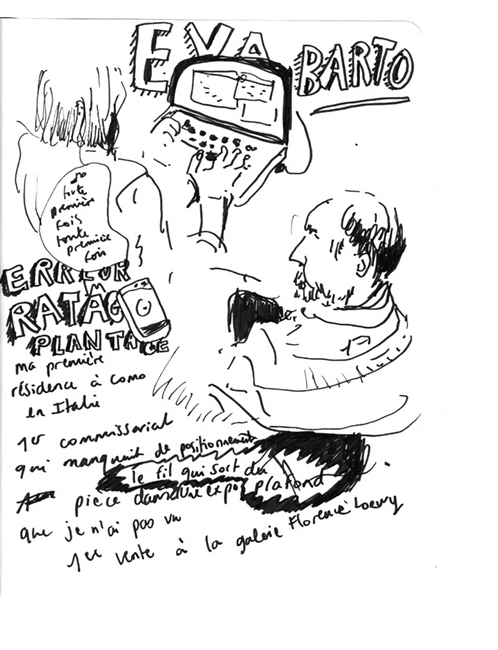 EVA BARTO
toute
première
fois
toute
première
fois
ERREUR
RATAGE
PLANTAGE
ma première
résidence à Como
en Italie
1er commissariat
qui manquait de positionnement
le fil qui sort du plafond
pièce dans une expo
que je n'ai pas vu
1ère vente à la galerie Florence Loewy